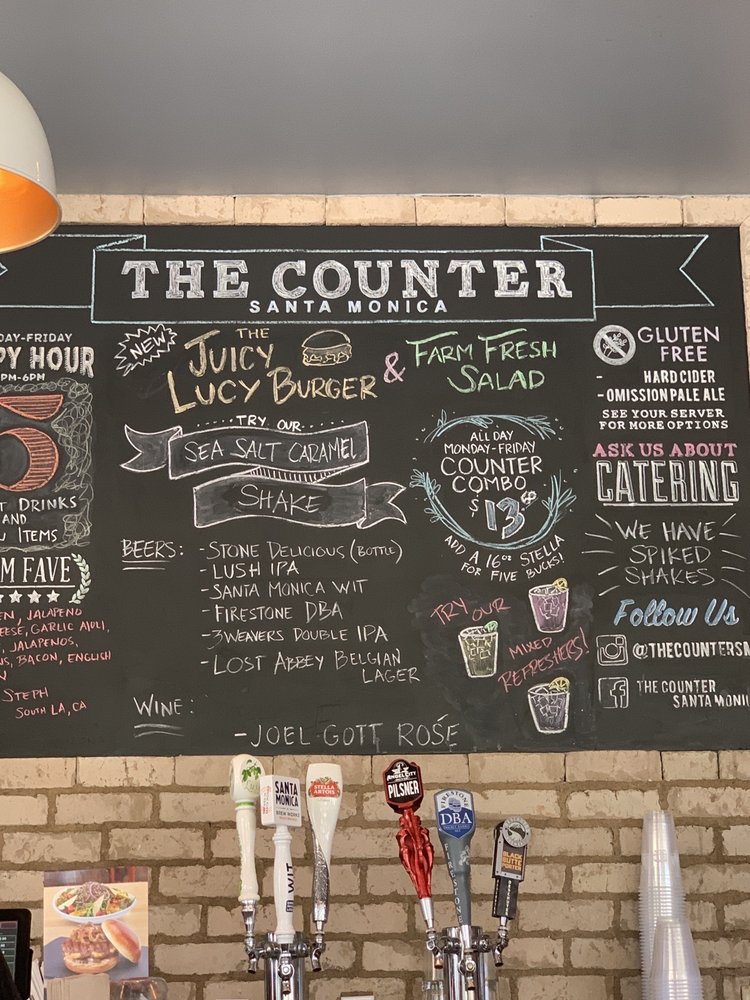 THE COUNTER
SANTA MONICA
DAY-FRIDAY
PY HOUR
PM-6PM
5
DRINKS
AND
ITEMS
M FAVE
EN, JALAPENO
EESE, GARLIC AIOLI,
JALAPENOS,
NS, BACON, ENGLISH
N
STEPH
SOUTH LA, CA
NEW
THE
JUICY
LUCY BURGER
& FARM FRESH
SALAD
TRY OUR
SEA SALT CARAMEL
SHAKE
ALL DAY
MONDAY-FRIDAY
COUNTER
COMBO
$13
ADD A 16oz STELLA
FOR FIVE BUCKS!
BEERS: - STONE DELICIOUS (BOTTLE)
- LUSH IPA
- SANTA MONICA WIT
- FIRESTONE DBA
- 3WEAVERS DOUBLE IPA
- LOST ABBEY BELGIAN
LAGER
WINE:
- JOEL GOTT ROSÉ
TRY OUR
MIXED
REFRESHERS!
GLUTEN
FREE
- HARD CIDER
- OMISSION PALE ALE
SEE YOUR SERVER
FOR MORE OPTIONS
ASK US ABOUT
CATERING
WE HAVE
SPIKED
SHAKES
Follow Us
@THECOUNTERSM
THE COUNTER
SANTA MONI
SANTA
MONICA
BREW WORKS
WIT
STELLA
ARTOIS
ANGEL CITY
PILSNER
FIRESTONE
DBA
FIRESTONE
BLACK
BUTTE
PORTER